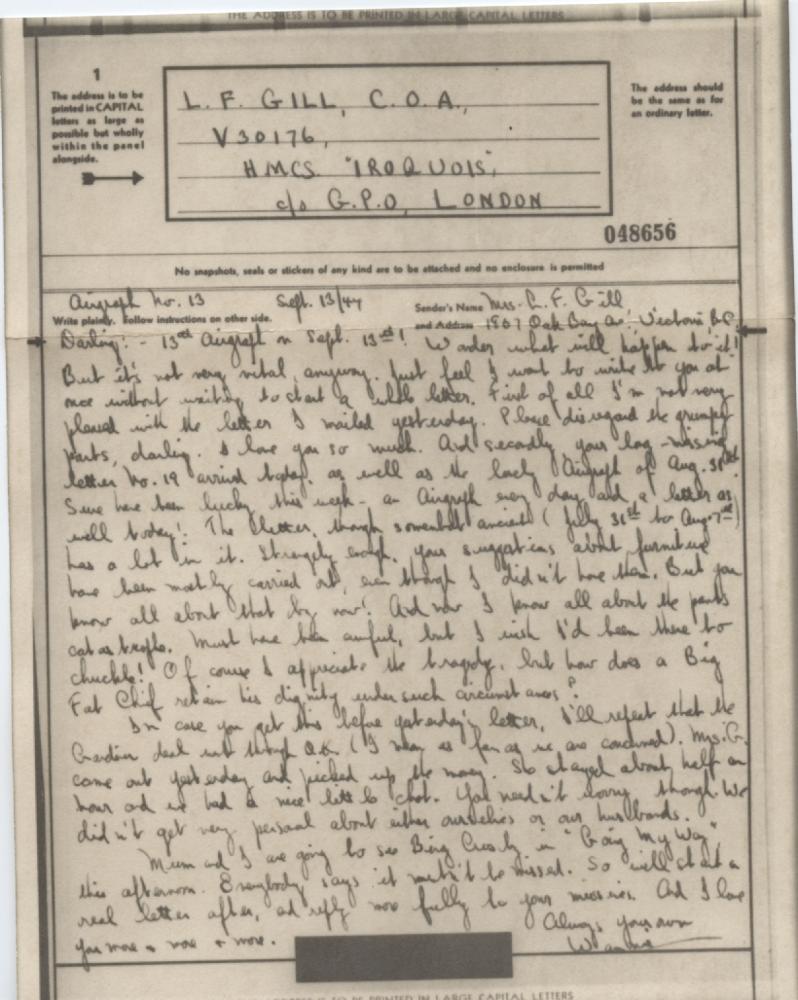 THE ADDRESS IS TO BE PRINTED IN LARGE CAPITAL LETTERS
1
The address is to be
printed in CAPITAL
letters as large as
possible but wholly
within the panel
alongside.
L. F. GILL, C.O.A.,
V30176,
HMCS "IROQUOIS",
c/o G.P.O, LONDON
The address should
be the same as for
an ordinary letter.
048656
No snapshots, seals or stickers of any kind are to be attached and no enclosure is permitted
Airgraph No. 13 Sept. 13/44 Sender's Name Mrs. L. F. Gill
Write plainly. Follow instructions on other side. and Address 1907 Oak Bay Av. Victoria B.C.
Darling: - 13th Airgraph on Sept. 13th! Wonder what will happen to it!
But it's not very vital, anyway. Just feel I want to write to you at
once without waiting to start a whole letter. First of all I'm not very
pleased with the letter I mailed yesterday. Please disregard the grumpy
parts, darling. I love you so much. And secondly, your long-missing
letter No. 19 arrived today, as well as the lovely Airgraph of Aug. 31st.
Sure have been lucky this week - an Airgraph every day and a letter as
well today! The letter, though somewhat ancient (July 31st to Aug. 7th)
has a lot in it. Strangely enough, your suggestions about furniture
have been mostly carried out, even though I didn't have them. But you
know all about that by now! And now I know all about the pants
catastrophe. Must have been awful, but I wish I'd been there to
chuckle! Of course I appreciate the tragedy, but how does a Big
Fat Chief retain his dignity under such circumstances?
In case you get this before yesterday's letter, I'll repeat that the
Gardiner deal went through OK (I mean as far as we are concerned). Mrs. G.
came out yesterday and picked up the money. So stayed about half an
hour and we had a nice little chat. You needn't worry though. We
didn't get very personal about either ourselves or our husbands.
Mum and I are going to see Bing Crosby in "Going My Way",
this afternoon. Everybody says it mustn't be missed. So will start a
real letter after, and reply more fully to your missives. And I love
you more & more & more. Always your own
THE ADDRESS IS TO BE PRINTED IN LARGE CAPITAL LETTERS